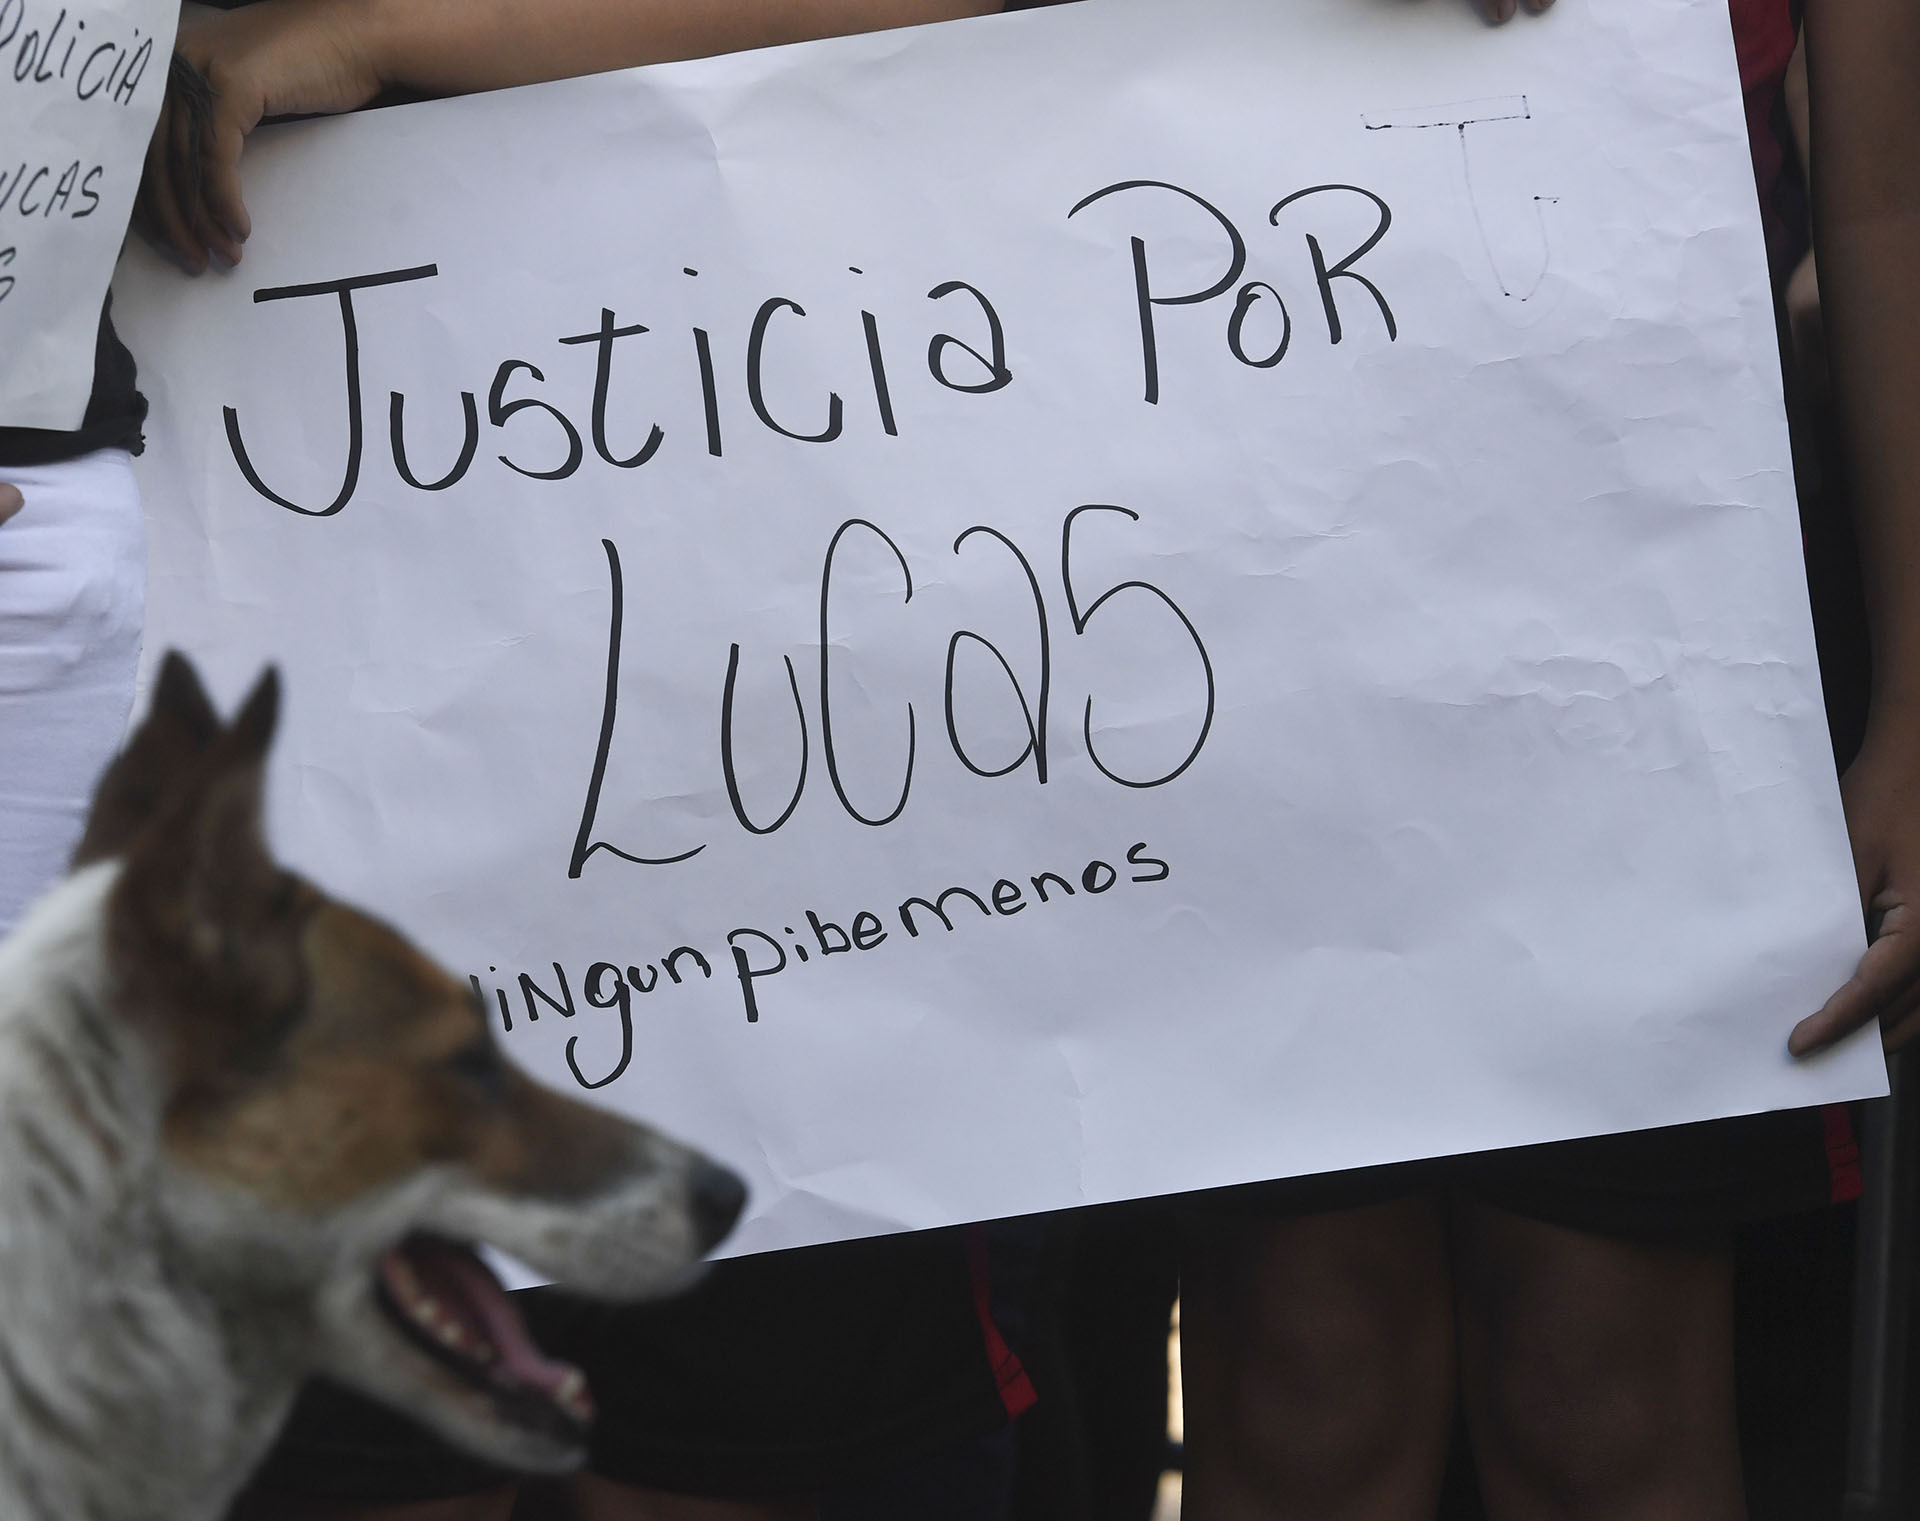 POLICIA
Justicia PoR
LUCaS
iNgun pibe menos